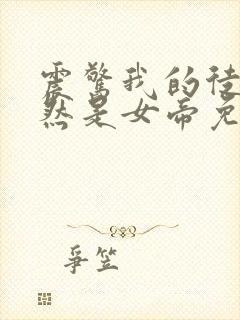 震惊我的徒
然是女帝免
争笠